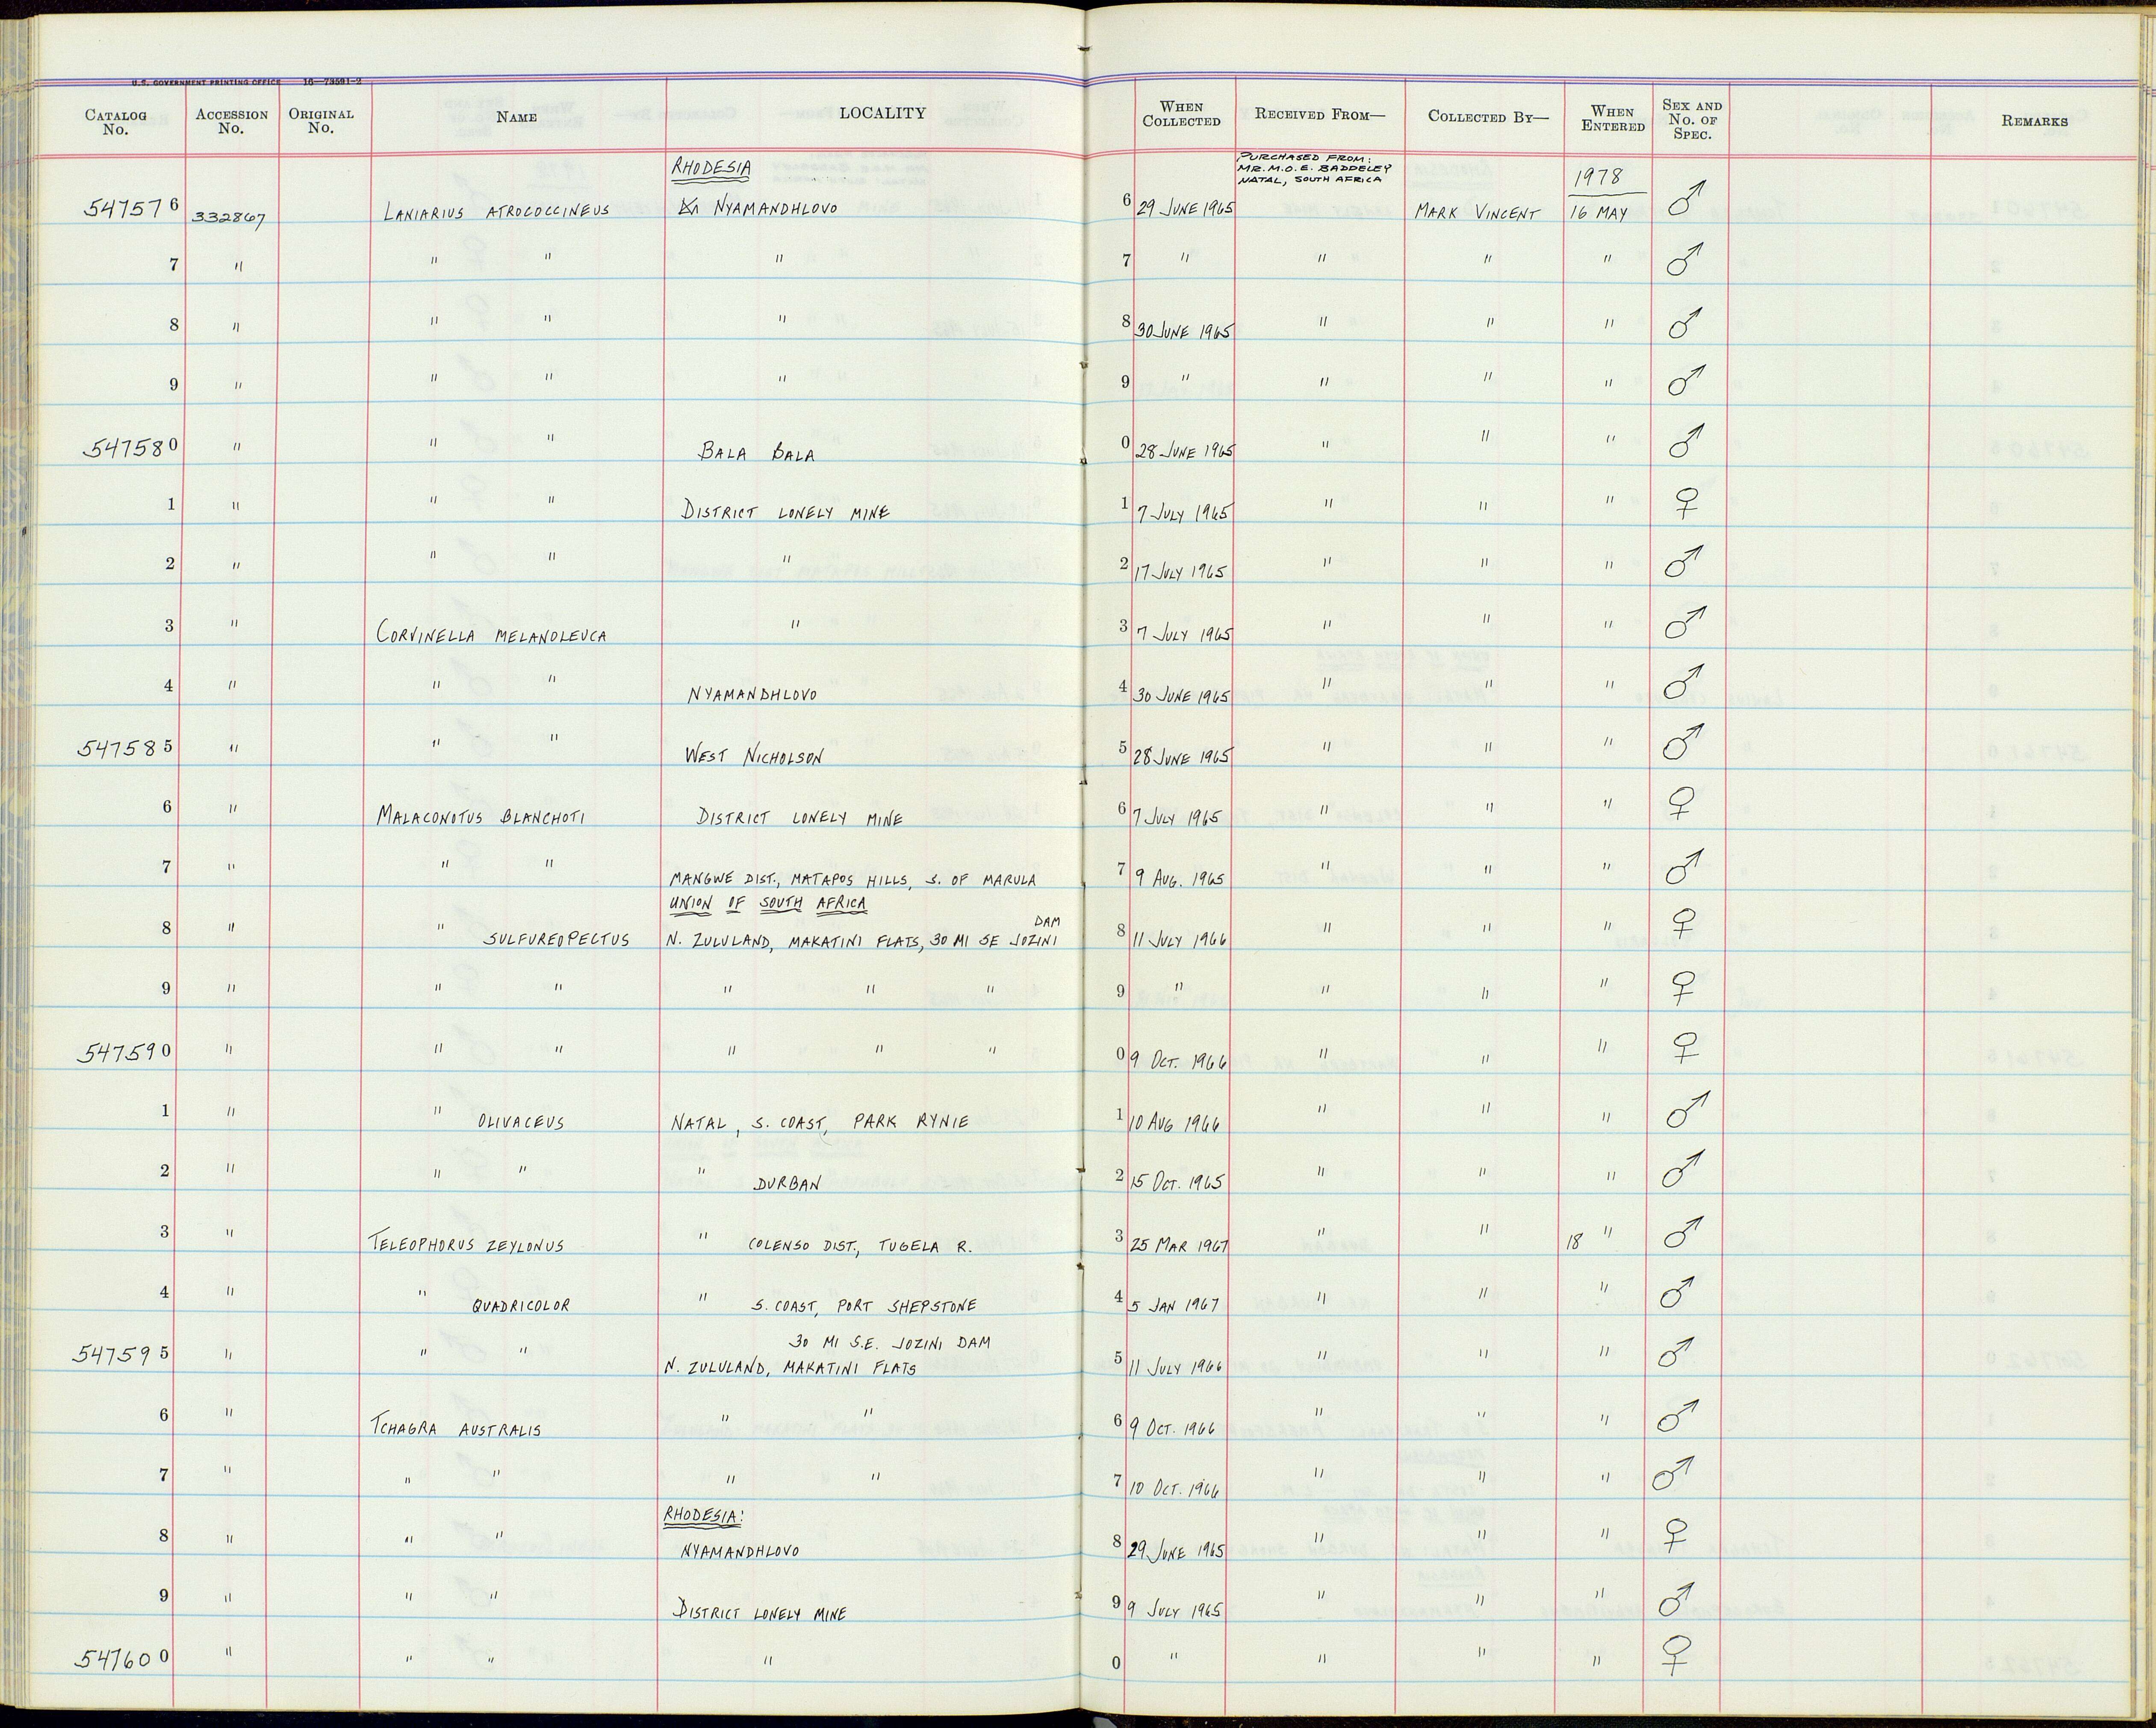 U.S. GOVERNMENT PRINTING OFFICE 16—73591-2
CATALOG No. ACCESSION No. ORIGINAL No. NAME LOCALITY WHEN COLLECTED RECEIVED FROM— COLLECTED BY— WHEN ENTERED SEX AND No. OF SPEC. REMARKS
RHODESIA PURCHASED FROM: MR. M.O.E. BADDELEY NATAL, SOUTH AFRICA 1978
547576 332867 LANIARIUS ATROCOCCINEUS NYAMANDHLOVO 6 29 JUNE 1965 MARK VINCENT 16 MAY ♂
7 " " " " 7 " " " " ♂
8 " " " " 8 30 JUNE 1965 " " " ♂
9 " " " " 9 " " " " ♂
547580 " " " BALA BALA 0 28 JUNE 1965 " " " ♂
1 " " " DISTRICT LONELY MINE 1 7 JULY 1965 " " " ♀
2 " " " " 2 17 JULY 1965 " " " ♂
3 " CORVINELLA MELANOLEUCA " 3 7 JULY 1965 " " " ♂
4 " " " NYAMANDHLOVO 4 30 JUNE 1965 " " " ♂
547585 " " " WEST NICHOLSON 5 28 JUNE 1965 " " " ♂
6 " MALACONOTUS BLANCHOTI DISTRICT LONELY MINE 6 7 JULY 1965 " " " ♀
7 " " " MANGWE DIST., MATAPOS HILLS, S. OF MARULA 7 9 AUG. 1965 " " " ♂
UNION OF SOUTH AFRICA
8 " " SULFUREOPECTUS N. ZULULAND, MAKATINI FLATS, 30 MI SE JOZINI DAM 8 11 JULY 1966 " " " ♀
9 " " " " " " 9 " " " " ♀
547590 " " " " " " 0 9 OCT. 1966 " " " ♀
1 " " OLIVACEUS NATAL, S. COAST, PARK RYNIE 1 10 AUG 1966 " " " ♂
2 " " " " DURBAN 2 15 OCT. 1965 " " " ♂
3 " TELEOPHORUS ZEYLONUS " COLENSO DIST., TUGELA R. 3 25 MAR 1967 " " 18 " ♂
4 " " QUADRICOLOR " S. COAST, PORT SHEPSTONE 4 5 JAN 1967 " " " ♂
30 MI S.E. JOZINI DAM
547595 " " " N. ZULULAND, MAKATINI FLATS 5 11 JULY 1966 " " " ♂
6 " TCHAGRA AUSTRALIS " " 6 9 OCT. 1966 " " " ♂
7 " " " " " 7 10 OCT. 1966 " " " ♂
RHODESIA:
8 " " " NYAMANDHLOVO 8 29 JUNE 1965 " " " ♀
9 " " " DISTRICT LONELY MINE 9 9 JULY 1965 " " " ♂
547600 " " " " 0 " " " " ♀